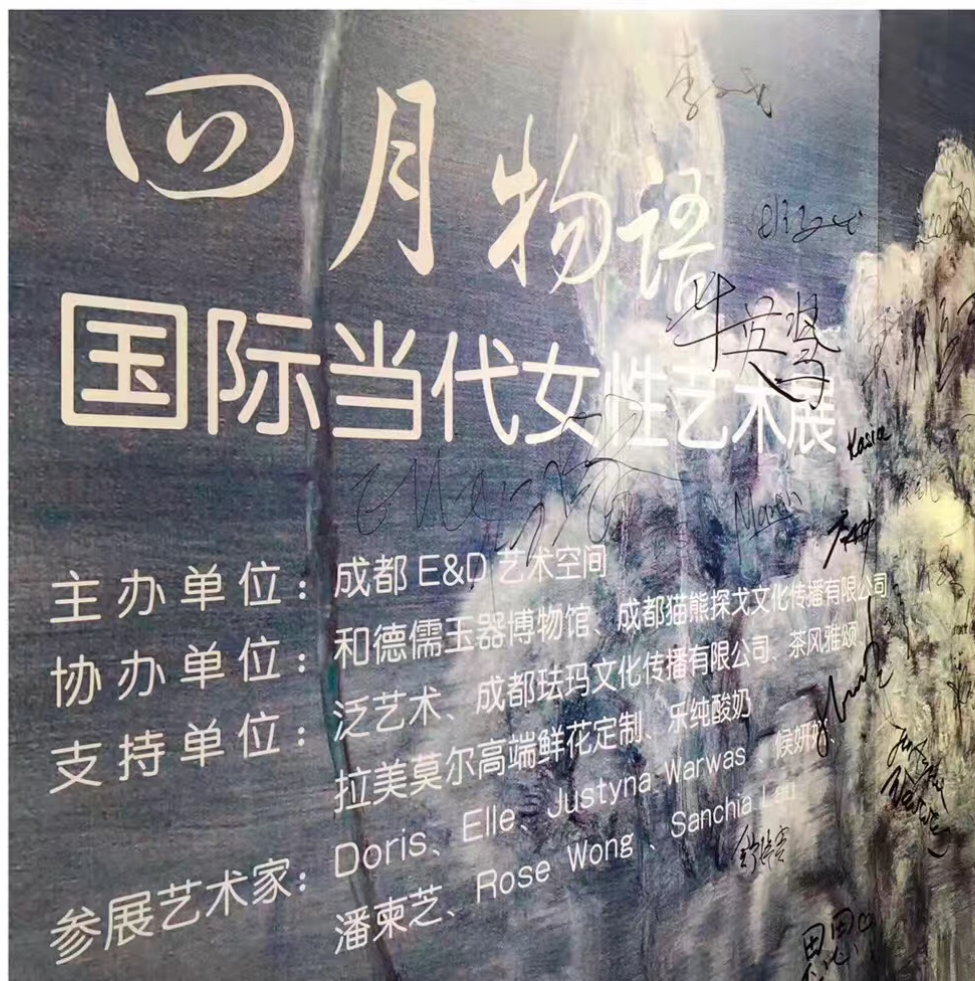 四月物语
国际当代女性艺术展
主办单位：成都 E&D 艺术空间
协办单位：和德儒玉器博物馆、成都猫熊探戈文化传播有限公司
支持单位：泛艺术、成都珐玛文化传播有限公司、茶风雅颂
拉美莫尔高端鲜花定制、乐纯酸奶
参展艺术家：Doris、Elle、Justyna Warwas、侯妍
潘柬芝、Rose Wong、Sanchia Lau
Kasia